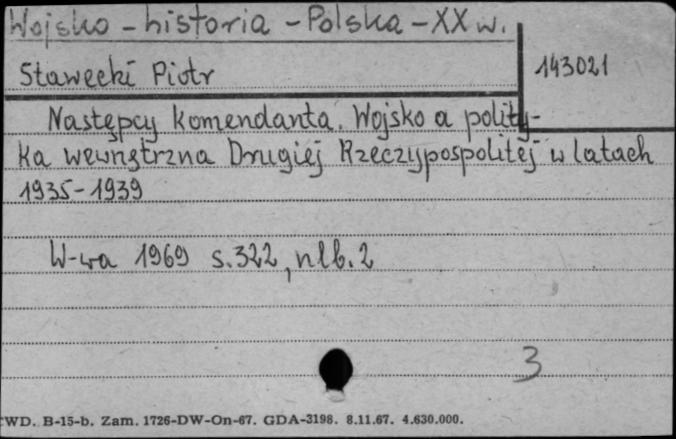 Wojsko - historia - Polska - XX w.
Stawecki Piotr
143021
Następcy Komendanta. Wojsko a polity-
ka wewnętrzna Drugiej Rzeczypospolitej w latach
1935-1939
W-wa 1969 s.322, nlb.2
3
WD. B-15-b. Zam. 1726-DW-On-67. GDA-3198. 8.11.67. 4.630.000.